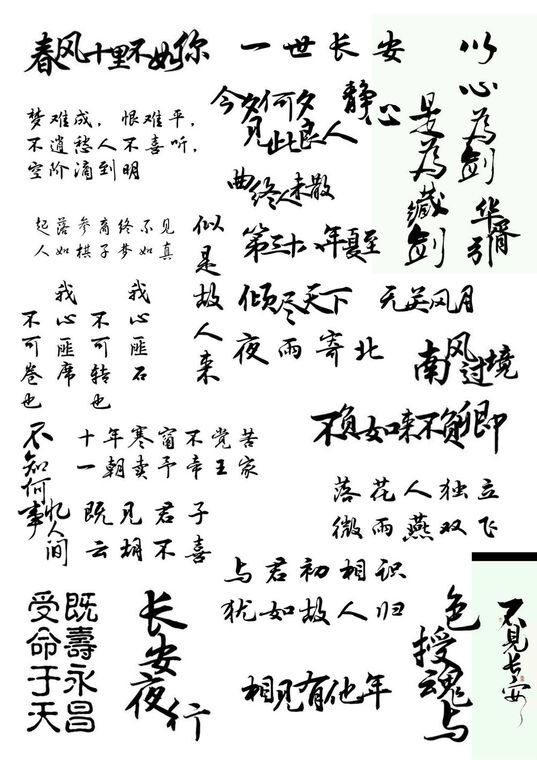 春风十里不如你
一世长安
以心为剑
是为藏剑
华胥引
今夕何夕
见此良人
静心
梦难成，恨难平，
不道愁人不喜听，
空阶滴到明
曲终人未散
起落参商终不见
人如棋子梦如真
似是故人来
第三十八年夏至
我心匪石
不可转也
我心匪席
不可卷也
倾尽天下
无关风月
夜雨寄北
南风过境
不负如来不负卿
不知何事忆人间
十年寒窗不觉苦
一朝卖予帝王家
既见君子
云胡不喜
落花人独立
微雨燕双飞
与君初相识
犹如故人归
受命于天
既壽永昌
长安夜行
相见有他年
色授魂与
不見长安